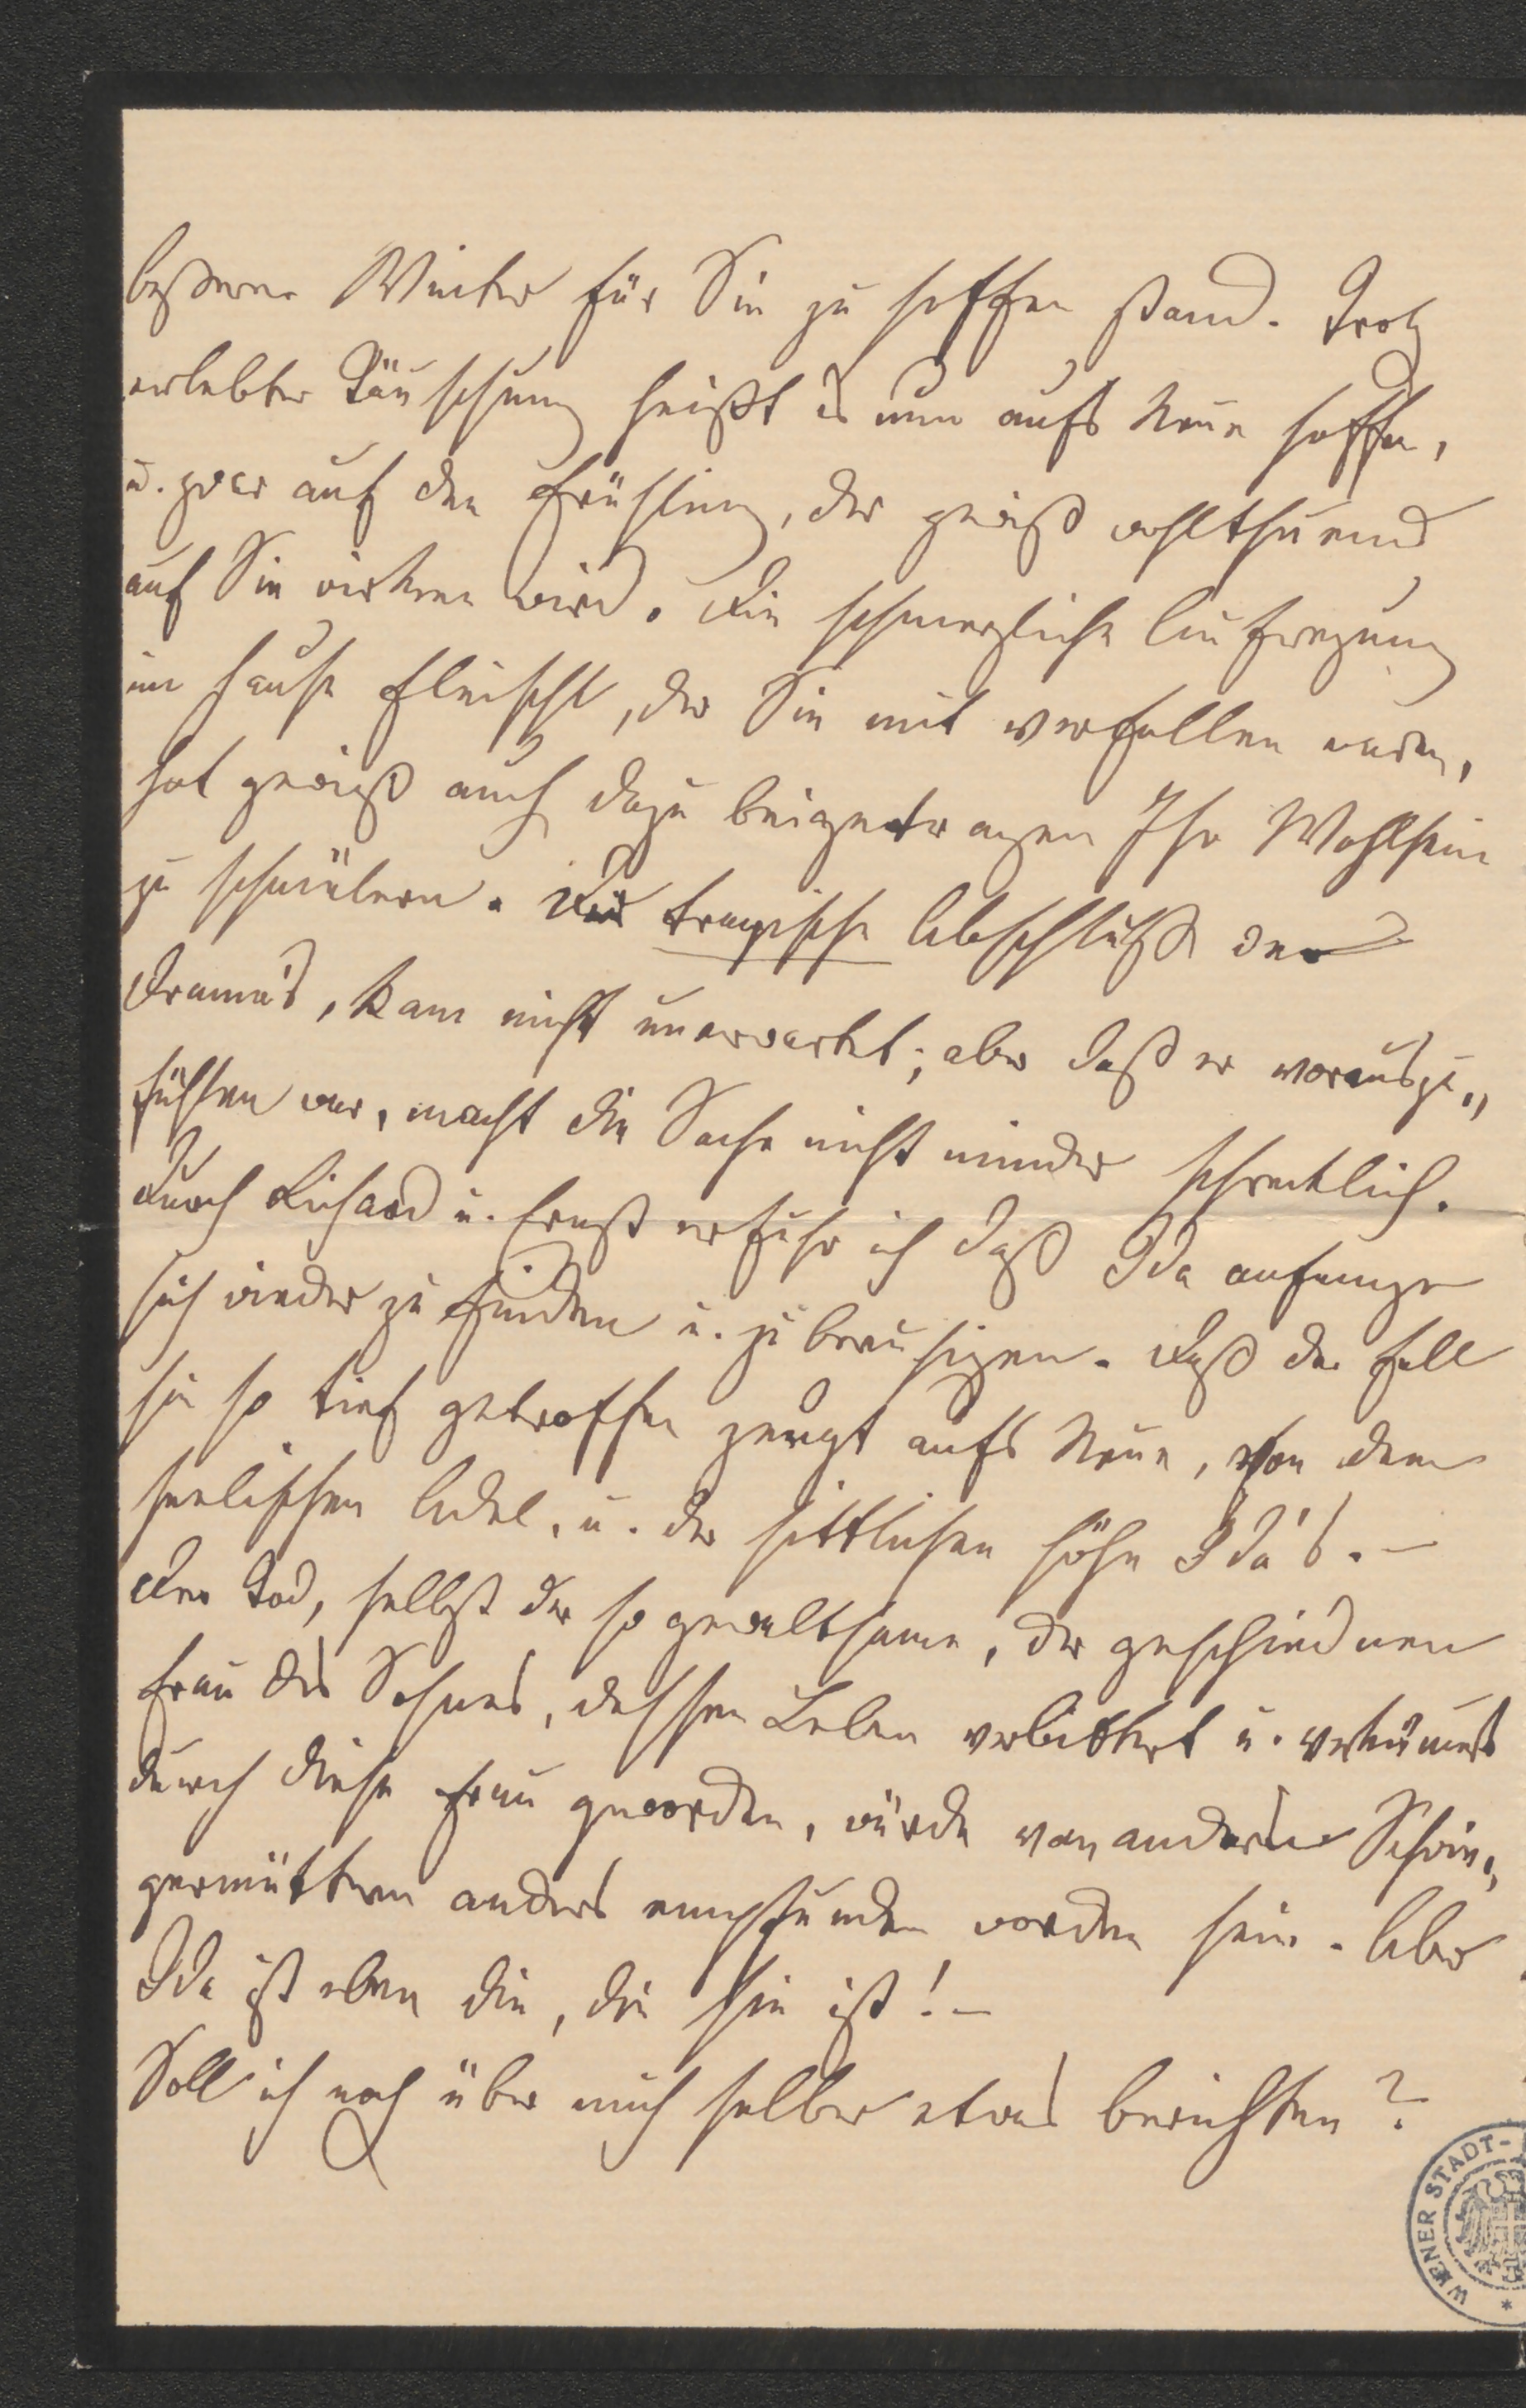 besseren Winter für Sie zu hoffen stand. Trotz
erlebter Täuschung heißt es nun aufs Neue hoffen,
u. zwar auf den Frühling, der gewiß wohlthuend
auf Sie wirken wird. Die schmerzliche Aufregung
im Hause Fleischl, der Sie mit verfallen waren,
hat gewiß auch dazu beigetragen Ihr Wohlsein
zu schmälern. Der tragische Abschluß des
Drama's, kam nicht unerwartet; aber daß er vorauszu„
sehen war, macht die Sache nicht minder schrecklich.
Durch Richard u. Ernst erfuhr ich daß Ida anfange
sich wieder zu finden u. zu beruhigen. Daß der Fall
sie so tief getroffen zeugt aufs Neue, von dem
seelischen Adel, u. der sittlichen Höhe Ida's. –
Der Tod, selbst der so gewaltsame, der geschiednen
Frau des Sohnes, dessen Leben verbittert u. verkümmert
durch diese Frau geworden, würde von anderen Schwie„
germüttern anders empfunden worden sein. Aber
Ida ist eben die, die sie ist! –
Soll ich noch über mich selber etwas berichten?
WIENER STADT-